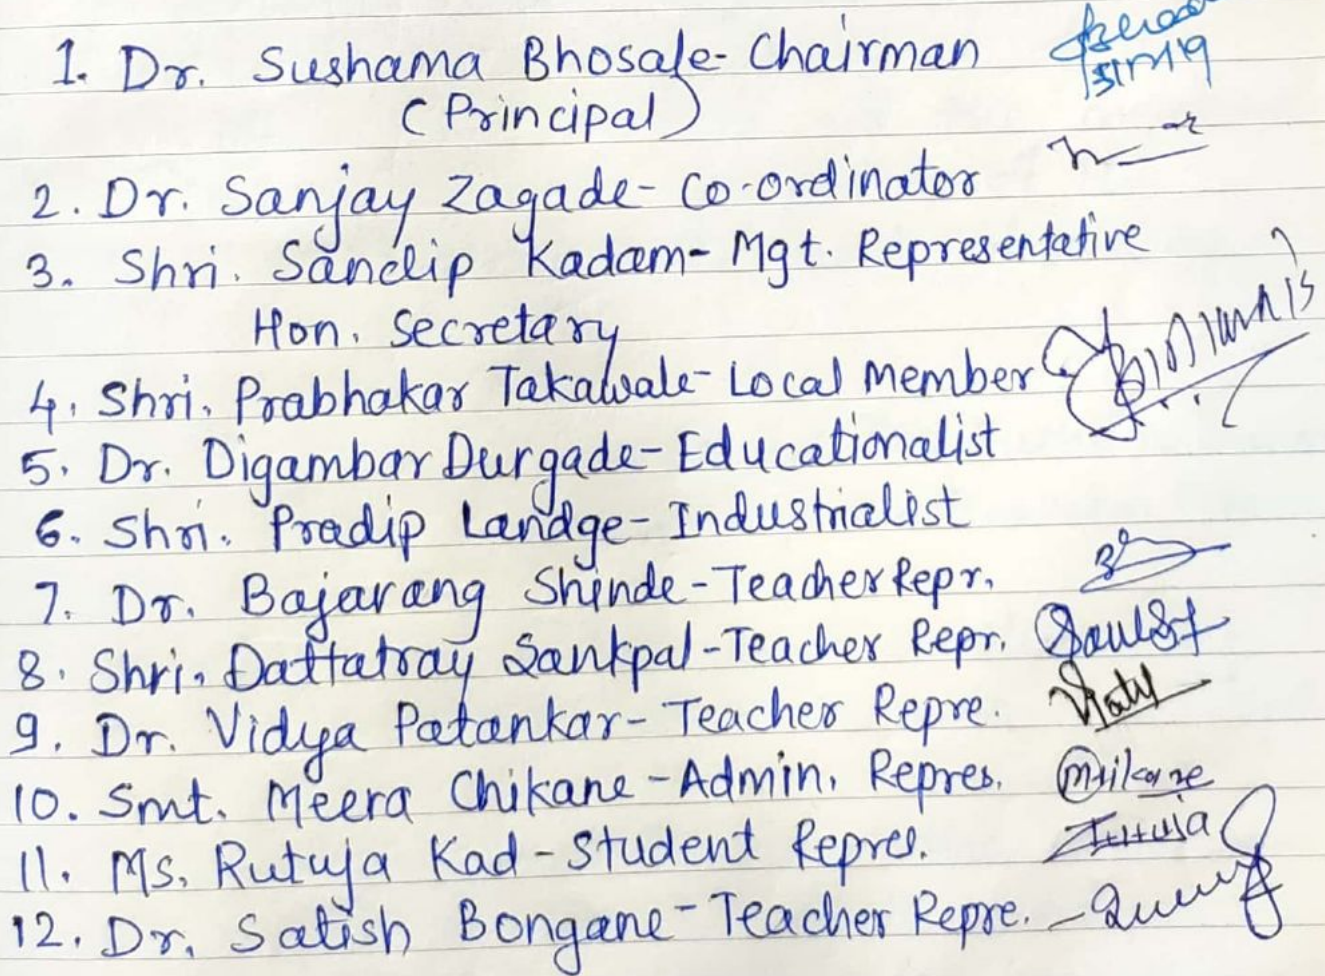 1. Dr. Sushama Bhosale - Chairman
(Principal)
2. Dr. Sanjay Zagade - Co-ordinator
3. Shri. Sandip Kadam - Mgt. Representative
Hon. Secretary
4. Shri. Prabhakar Takawale - Local Member
5. Dr. Digambar Durgade - Educationalist
6. Shri. Pradip Landge - Industrialist
7. Dr. Bajarang Shinde - Teacher Repr.
8. Shri. Dattatray Sankpal - Teacher Repr.
9. Dr. Vidya Patankar - Teacher Repre.
10. Smt. Meera Chikane - Admin. Repres.
11. Ms. Rutuja Kad - Student Repres.
12. Dr. Satish Bongane - Teacher Repre.